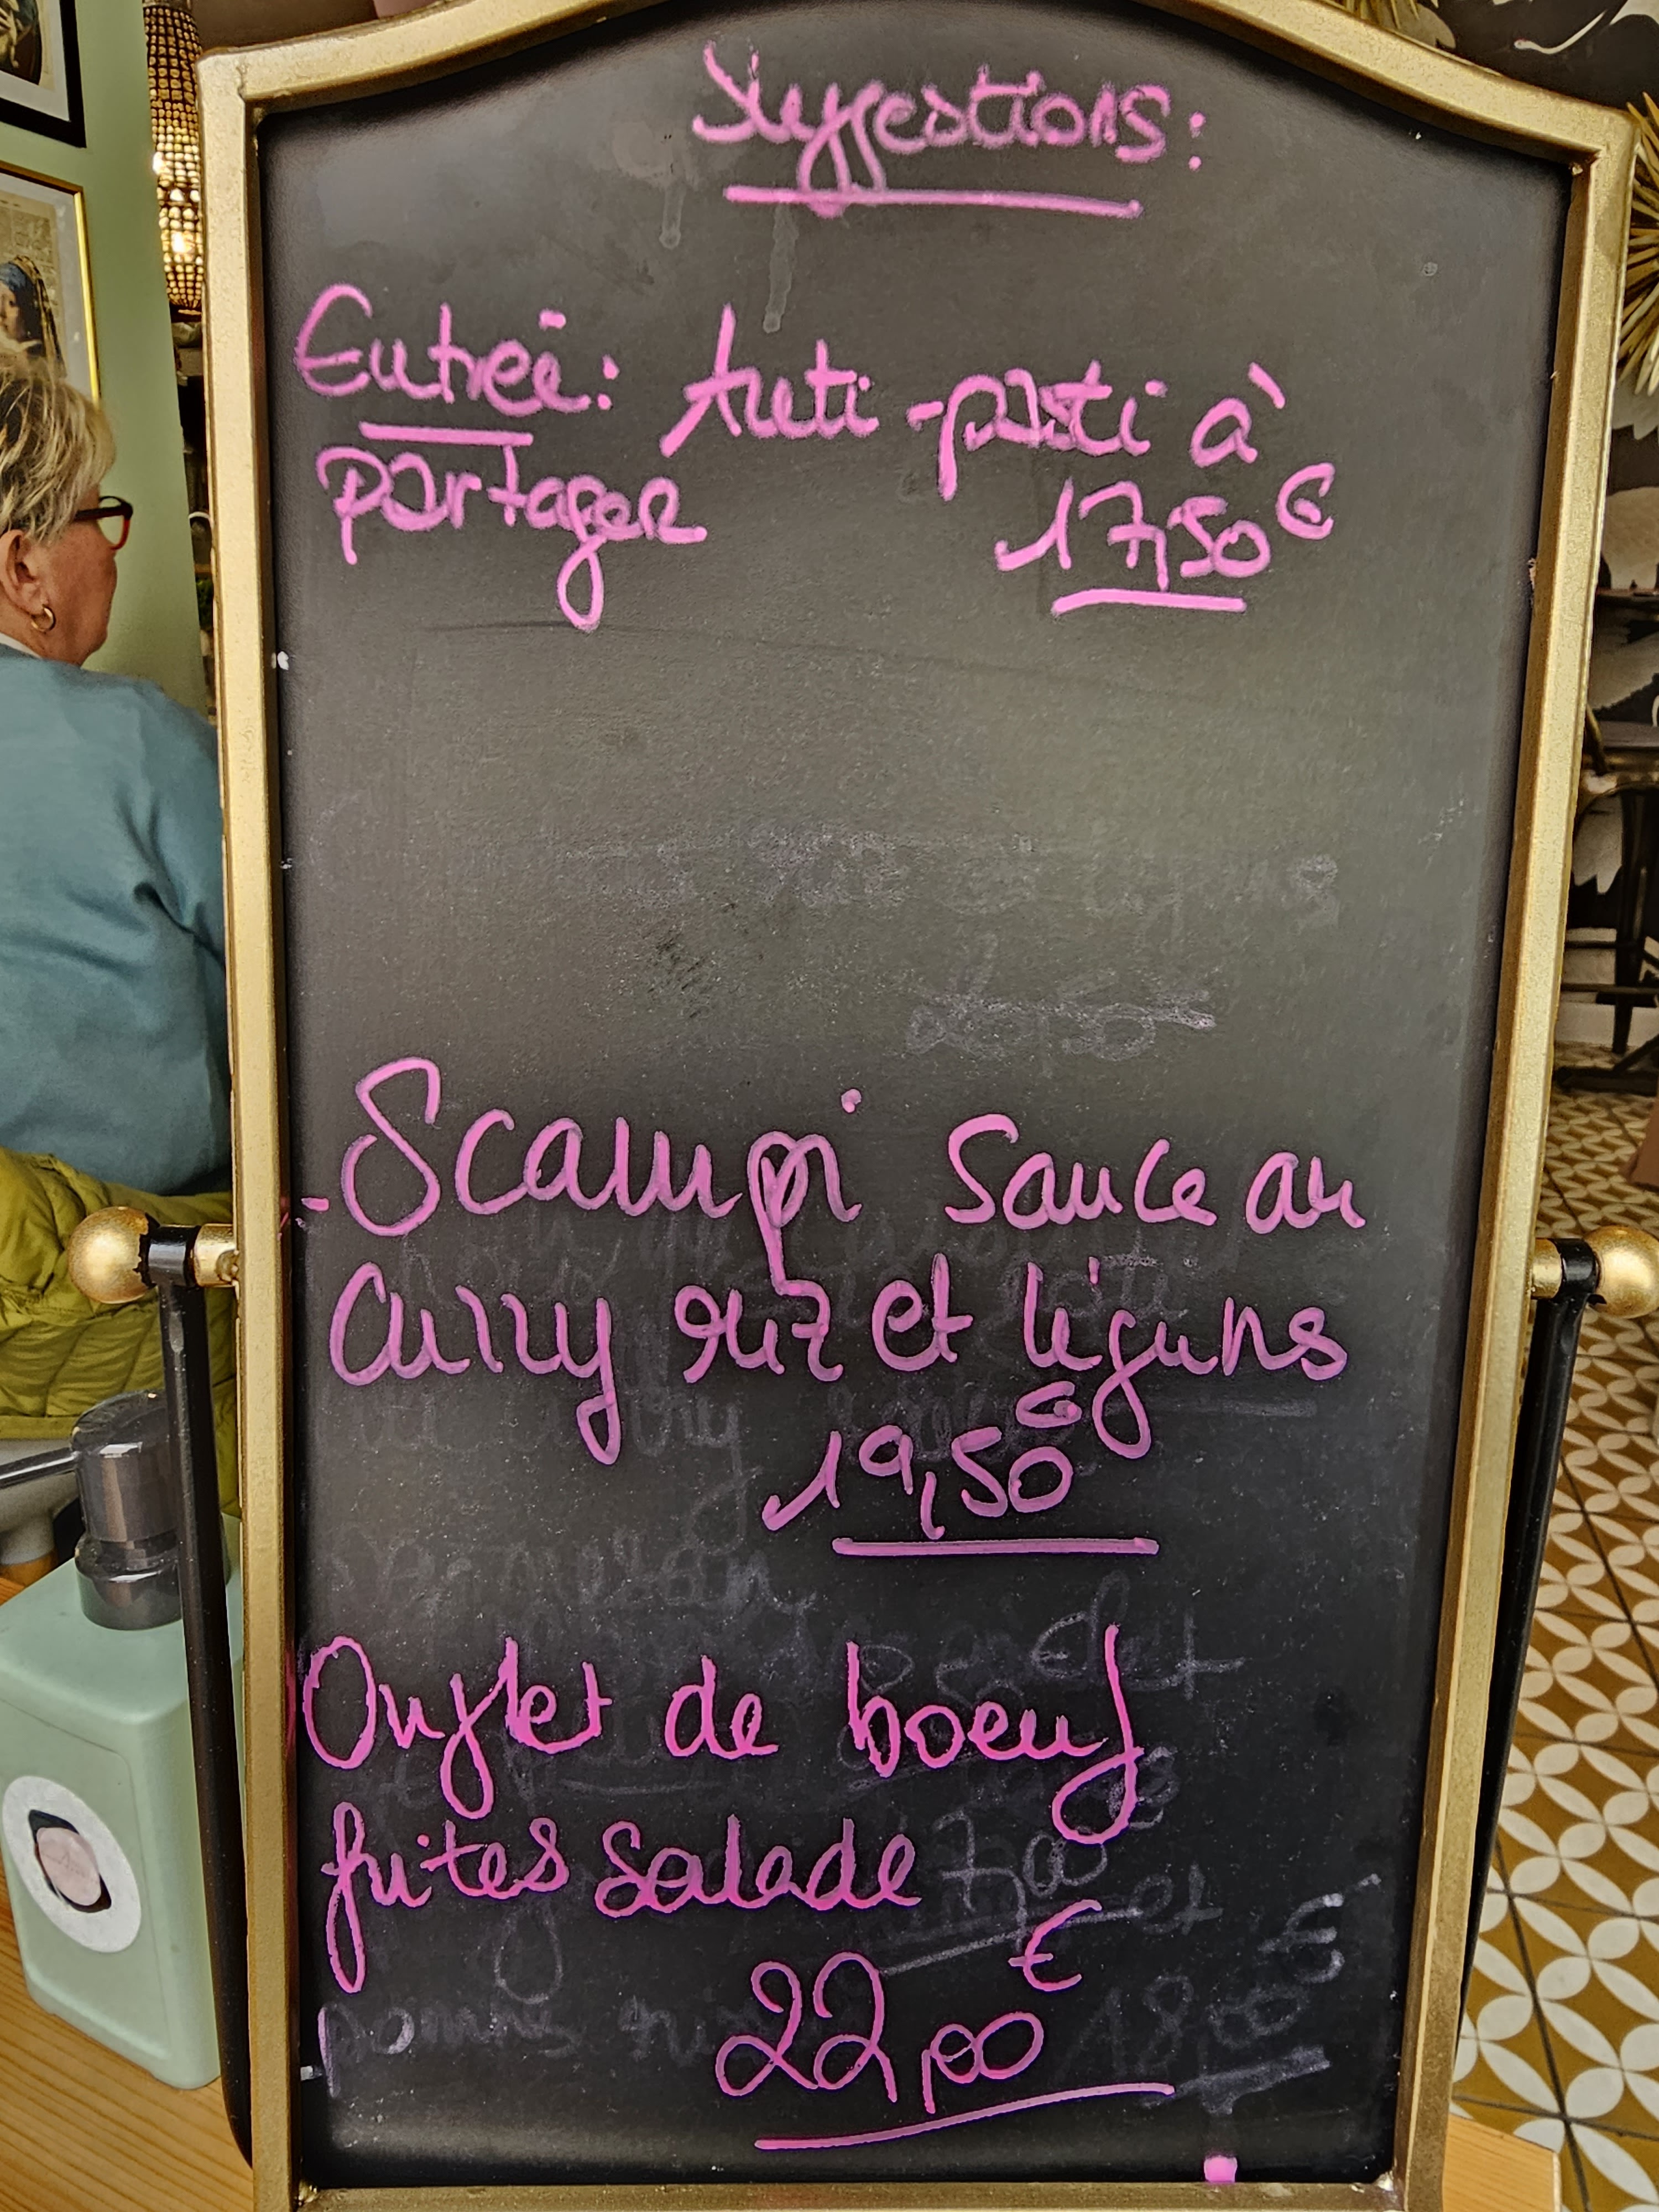 Suggestions:
Entrée: Anti-pasti à
partager 17,50€
- Scampi Sauce au
Curry riz et légums
19,50€
Onglet de boeuf
frites salade
22,00€